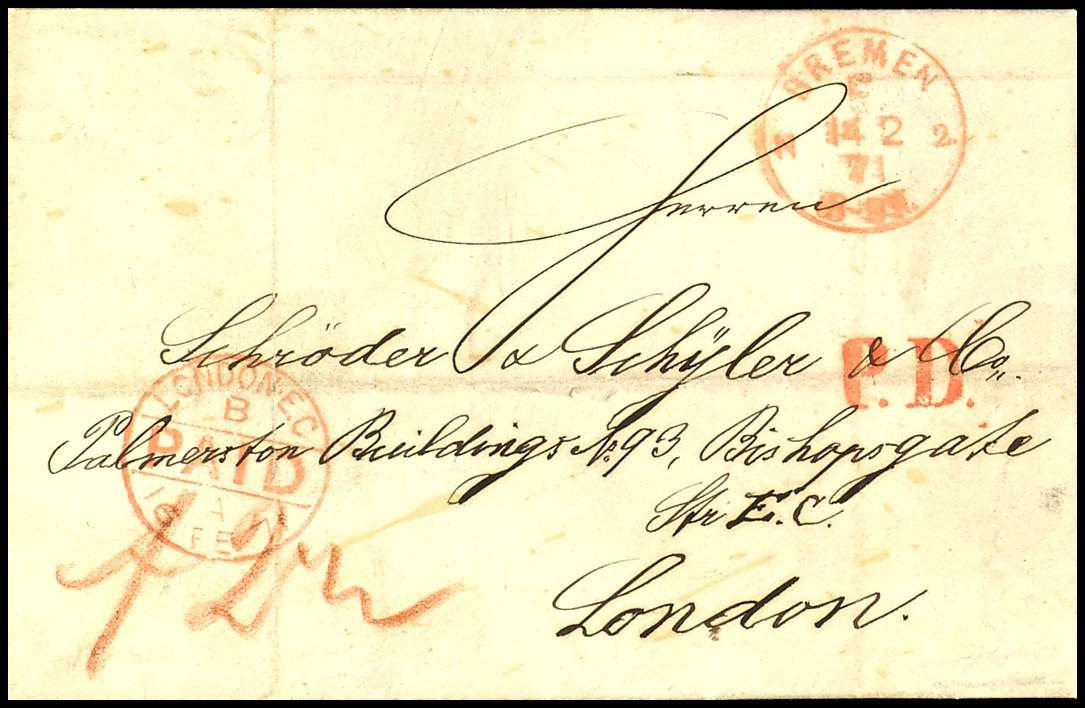 BREMEN
E
14 2
71
N 2
Herren
Schröder & Schÿler & Co.
P.D.
LONDON.E.C
B
PAID
A
FE
Palmerston Buildings No. 93, Bishopsgate
Str E.C.
London.